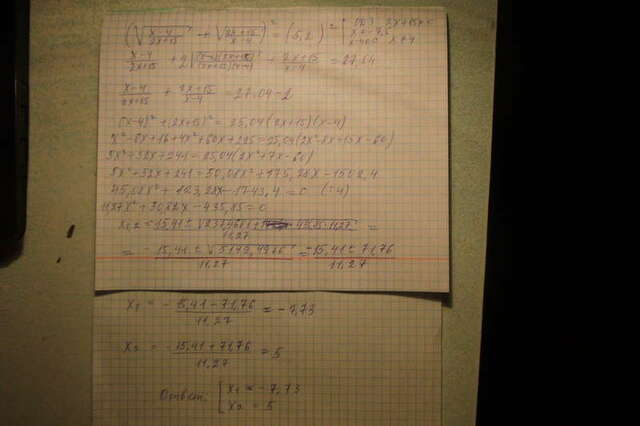 (√(x-4)/(2x+15) + √(2x+15)/(x-4))² = (5,2)² [ОДЗ 2x+15≠0
x≠-7,5
x-4≠0 x≠4
(x-4)/(2x+15) + 2√((x-4)(2x+15))/((2x+15)(x-4)) + (2x+15)/(x-4) = 27,04
(x-4)/(2x+15) + (2x+15)/(x-4) = 27,04-2
(x-4)² + (2x+15)² = 25,04(2x+15)(x-4)
x²-8x+16+4x²+60x+225=25,04(2x²-8x+15x-60)
5x²+52x+241=25,04(2x²+7x-60)
5x²+52x+241=50,08x²+175,28x-1502,4
45,08x²+123,28x-1743,4=0 (:4)
11,27x²+30,82x-435,85=0
x₁,₂ = (-15,41±√237,4681+ 435,85·11,27)/11,27 =
= (-15,41±√5149,4976)/11,27 = (-15,41±71,76)/11,27
x₁ = (-15,41-71,76)/11,27 = -7,73
x₂ = (-15,41+71,76)/11,27 = 5
Ответ: [x₁=-7,73
x₂=5